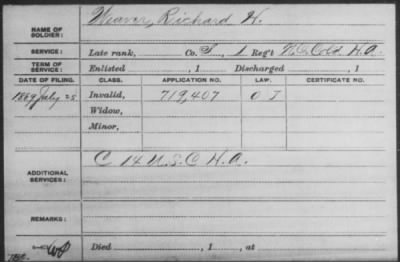 NAME OF SOLDIER: Weaver, Richard H.
SERVICE: Late rank, Co. I, 1 Reg't N.C. Cold H.A.
TERM OF SERVICE: Enlisted , 1 Discharged , 1
DATE OF FILING. CLASS. APPLICATION NO. LAW. CERTIFICATE NO.
1889 July 25 Invalid, 719,407 O I
Widow,
Minor,
ADDITIONAL SERVICES: C 14 U.S.C. H.A.
REMARKS:
Died , 1 , at